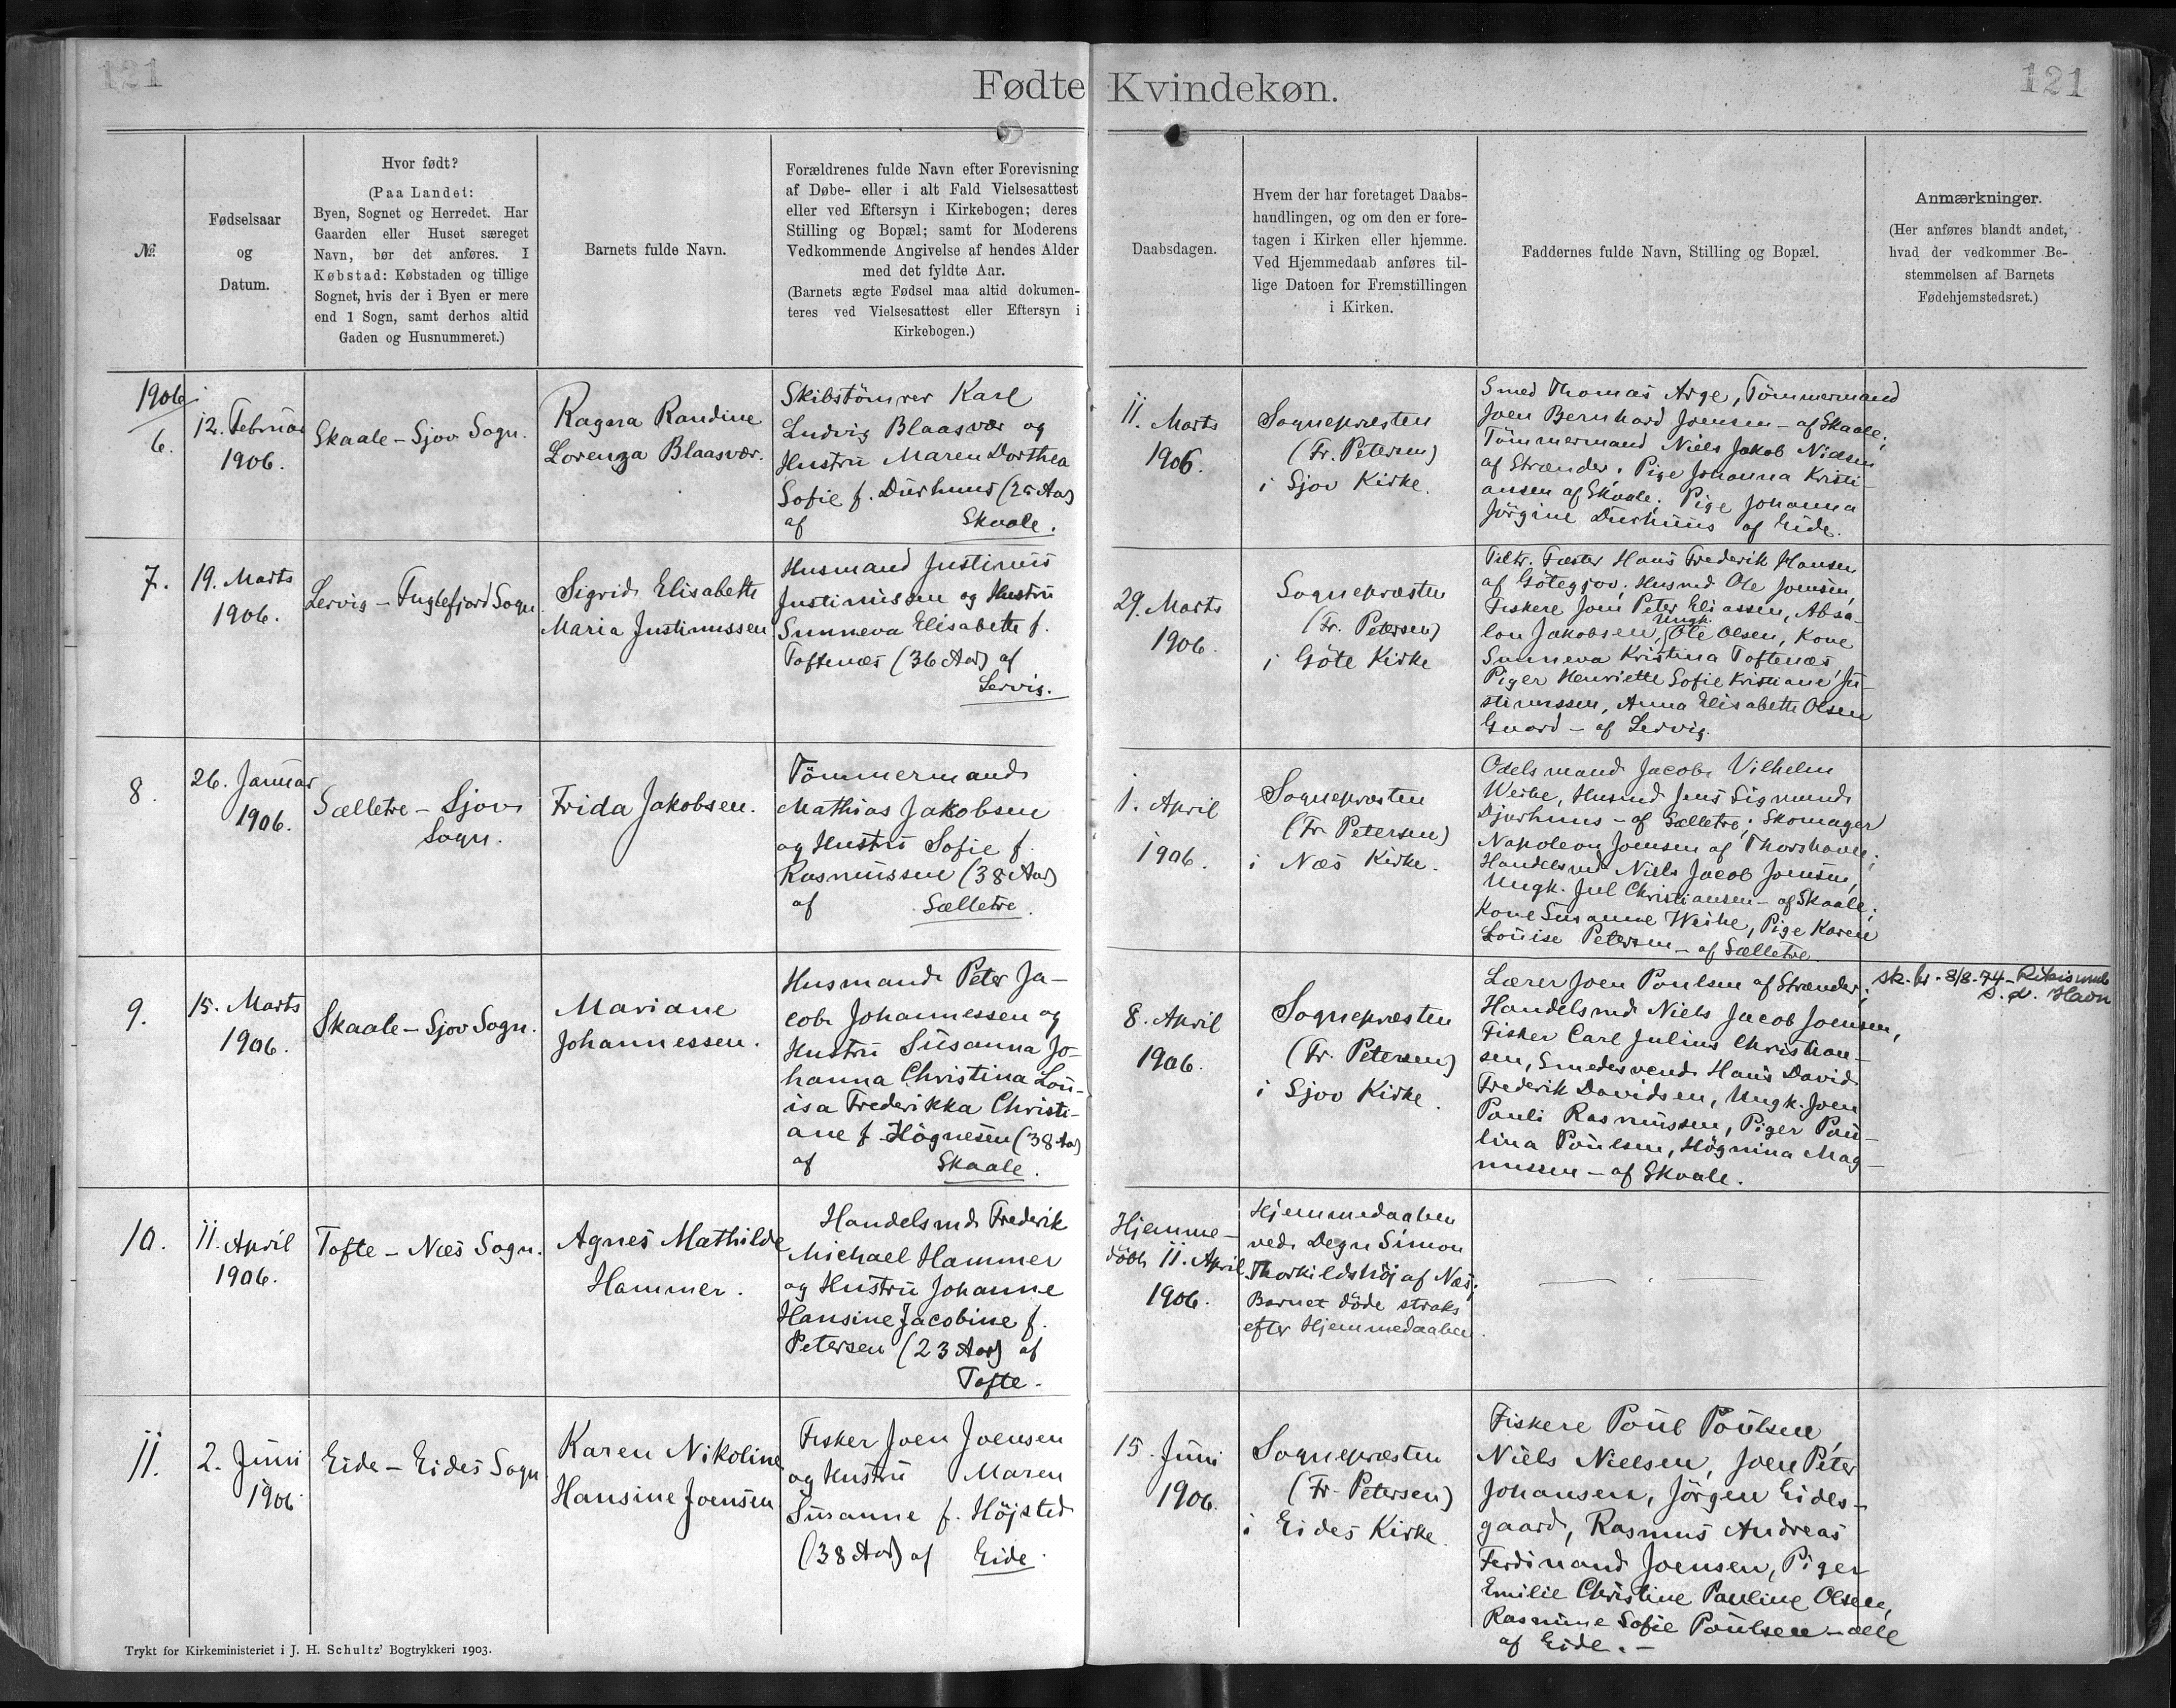 121
Fødte Kvindekøn.
121
№
Fødselsaar
og
Datum.
Hvor født?
(Paa Landet:
Byen, Sognet og Herredet. Har
Gaarden eller Huset særeget
Navn, bør det anføres. I
Købstad: Købstaden og tillige
Sognet, hvis der i Byen er mere
end 1 Sogn, samt derhos altid
Gaden og Husnummeret.)
Barnets fulde Navn.
Forældrenes fulde Navn efter Forevisning
af Døbe- eller i alt Fald Vielsesattest
eller ved Eftersyn i Kirkebogen; deres
Stilling og Bopæl; samt for Moderens
Vedkommende Angivelse af hendes Alder
med det fyldte Aar.
(Barnets ægte Fødsel maa altid dokumen-
teres ved Vielsesattest eller Eftersyn i
Kirkebogen.)
Daabsdagen.
Hvem der har foretaget Daabs-
handlingen, og om den er fore-
tagen i Kirken eller hjemme.
Ved Hjemmedaab anføres til-
lige Datoen for Fremstillingen
i Kirken.
Faddernes fulde Navn, Stilling og Bopæl.
Anmærkninger.
(Her anføres blandt andet,
hvad der vedkommer Be-
stemmelsen af Barnets
Fødehjemstedsret.)
1906
6.
12. Februar
1906.
Skaale – Sjov Sogn.
Ragna Randine
Lorenza Blaasvær.
Skibstömrer Karl
Ludvig Blaasvær og
Hustru Maren Dorthea
Sofie f. Durhuus (25 Aar)
af Skaale.
11. Marts
1906.
Sognepræsten
(Fr. Petersen)
i Sjov Kirke.
Smed Thomas Arge, Tömmermand
Joen Bernhard Joensen – af Skaale;
Tömmermand Niels Jakob Nielsen
af Strænder; Pige Johanna Kristi-
ansen af Skaale; Pige Johanna
Jörgine Durhuus af Eide.
7.
19. Marts
1906.
Lervig – Fuglefjord Sogn.
Sigrid Elisabeth
Maria Justinussen
Husmand Justinus
Justinussen og Hustru
Sunneva Elisabeth f.
Toftenæs (36 Aar) af
Lervig.
29. Marts
1906.
Sognepræsten
(Fr. Petersen)
i Göte Kirke
Fæster Hans Frederik Hansen
af Götegjov; Husmd Ole Joensen,
Fiskere Joen Peter Eliassen, Absa-
lon Jakobsen, Ungk. Ole Olsen, Kone
Sunneva Kristina Toftenæs,
Piger Henriette Sofie Kristiane Ju-
stinussen, Anna Elisabeth Olsen
Guard – af Lervig.
8.
26. Januar
1906.
Sælletre – Sjov
Sogn.
Frida Jakobsen.
Tömmermand
Mathias Jakobsen
og Hustru Sofie f.
Rasmussen (38 Aar)
af Sælletre.
1. April
1906.
Sognepræsten
(Fr. Petersen)
i Næs Kirke.
Odelsmand Jacob Vilhelm
Weihe, Husmd Jens Sigmund
Djurhuus – af Sælletre; Skomager
Napoleon Joensen af Thorshavn;
Handelsmd Niels Jacob Joensen,
Ungk. Jul Christiansen – af Skaale;
Kone Susanne Weihe, Pige Karen
Louise Petersen – af Sælletre.
9.
15. Marts
1906.
Skaale – Sjov Sogn.
Mariane
Johannessen.
Husmand Peter Ja-
cob Johannessen og
Hustru Susanna Jo-
hanna Christina Lou-
isa Frederikka Christi-
ane f. Högnesen (38 Aar)
af Skaale.
8. April
1906.
Sognepræsten
(Fr. Petersen)
i Sjov Kirke.
Lærer Joen Poulsen af Strænder;
Handelsmd Niels Jacob Joensen,
Fisker Carl Julius Christian-
sen, Smedesvend Hans David
Frederik Davidsen, Ungk. Joen
Pauli Rasmussen, Piger Pou-
lina Poulsen, Högnina Mag-
nussen – af Skaale.
sk. br. 8/8-74 – Rikisumb
S. d. Havn
10.
11. April
1906.
Tofte – Næs Sogn.
Agnes Mathilde
Hammer.
Handelsmd Frederik
Michael Hammer
og Hustru Johanne
Hansine Jacobine f.
Petersen (23 Aar) af
Tofte.
Hjemme-
döbt 11. April
1906.
Hjemmedaaben
ved Degn Simon
Thorkildshöj af Næs;
Barnet döde straks
efter Hjemmedaaben.
11.
2. Juni
1906.
Eide – Eides Sogn
Karen Nikoline
Hansine Joensen
Fisker Joen Joensen
og Hustru Maren
Susanne f. Höjsted
(38 Aar) af Eide.
15. Juni
1906.
Sognepræsten
(Fr. Petersen)
i Eides Kirke.
Fiskere Poul Poulsen,
Niels Nielsen, Joen Peter
Johansen, Jörgen Eides-
gaard, Rasmus Andreas
Ferdinand Joensen, Piger
Emilie Christine Pauline Olsen,
Rasmine Sofie Poulsen – alle
af Eide. –
Trykt for Kirkeministeriet i J. H. Schultz' Bogtrykkeri 1903.